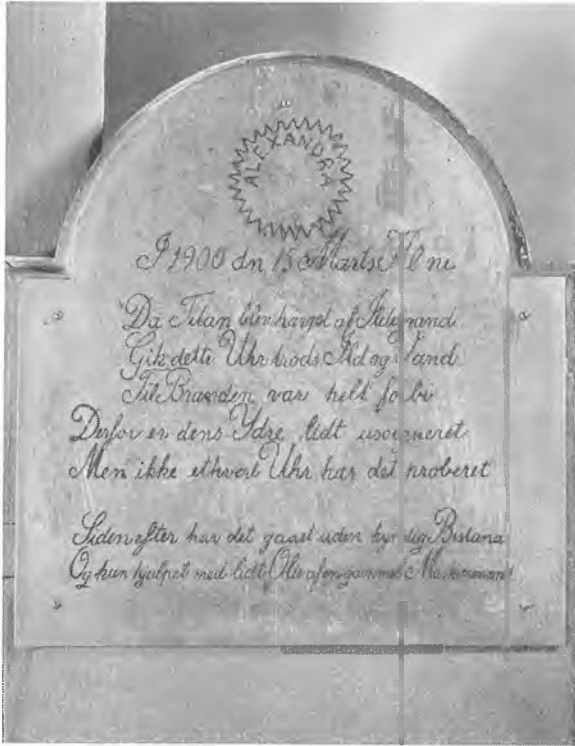 ALEXANDRA
I 1900 dn 15 Marts Kl ni
Da Titan blev hærget af Ildebrand
Gik dette Uhr trods Ild og Vand
Til Branden var helt forbi
Derfor er dens Ydre lidt usoigneret
Men ikke ethvert Uhr har det proberet
Siden efter har det gaaet uden kyndig Bistand
Og kun hjulpet med lidt Olie af en gammel Maskinmand